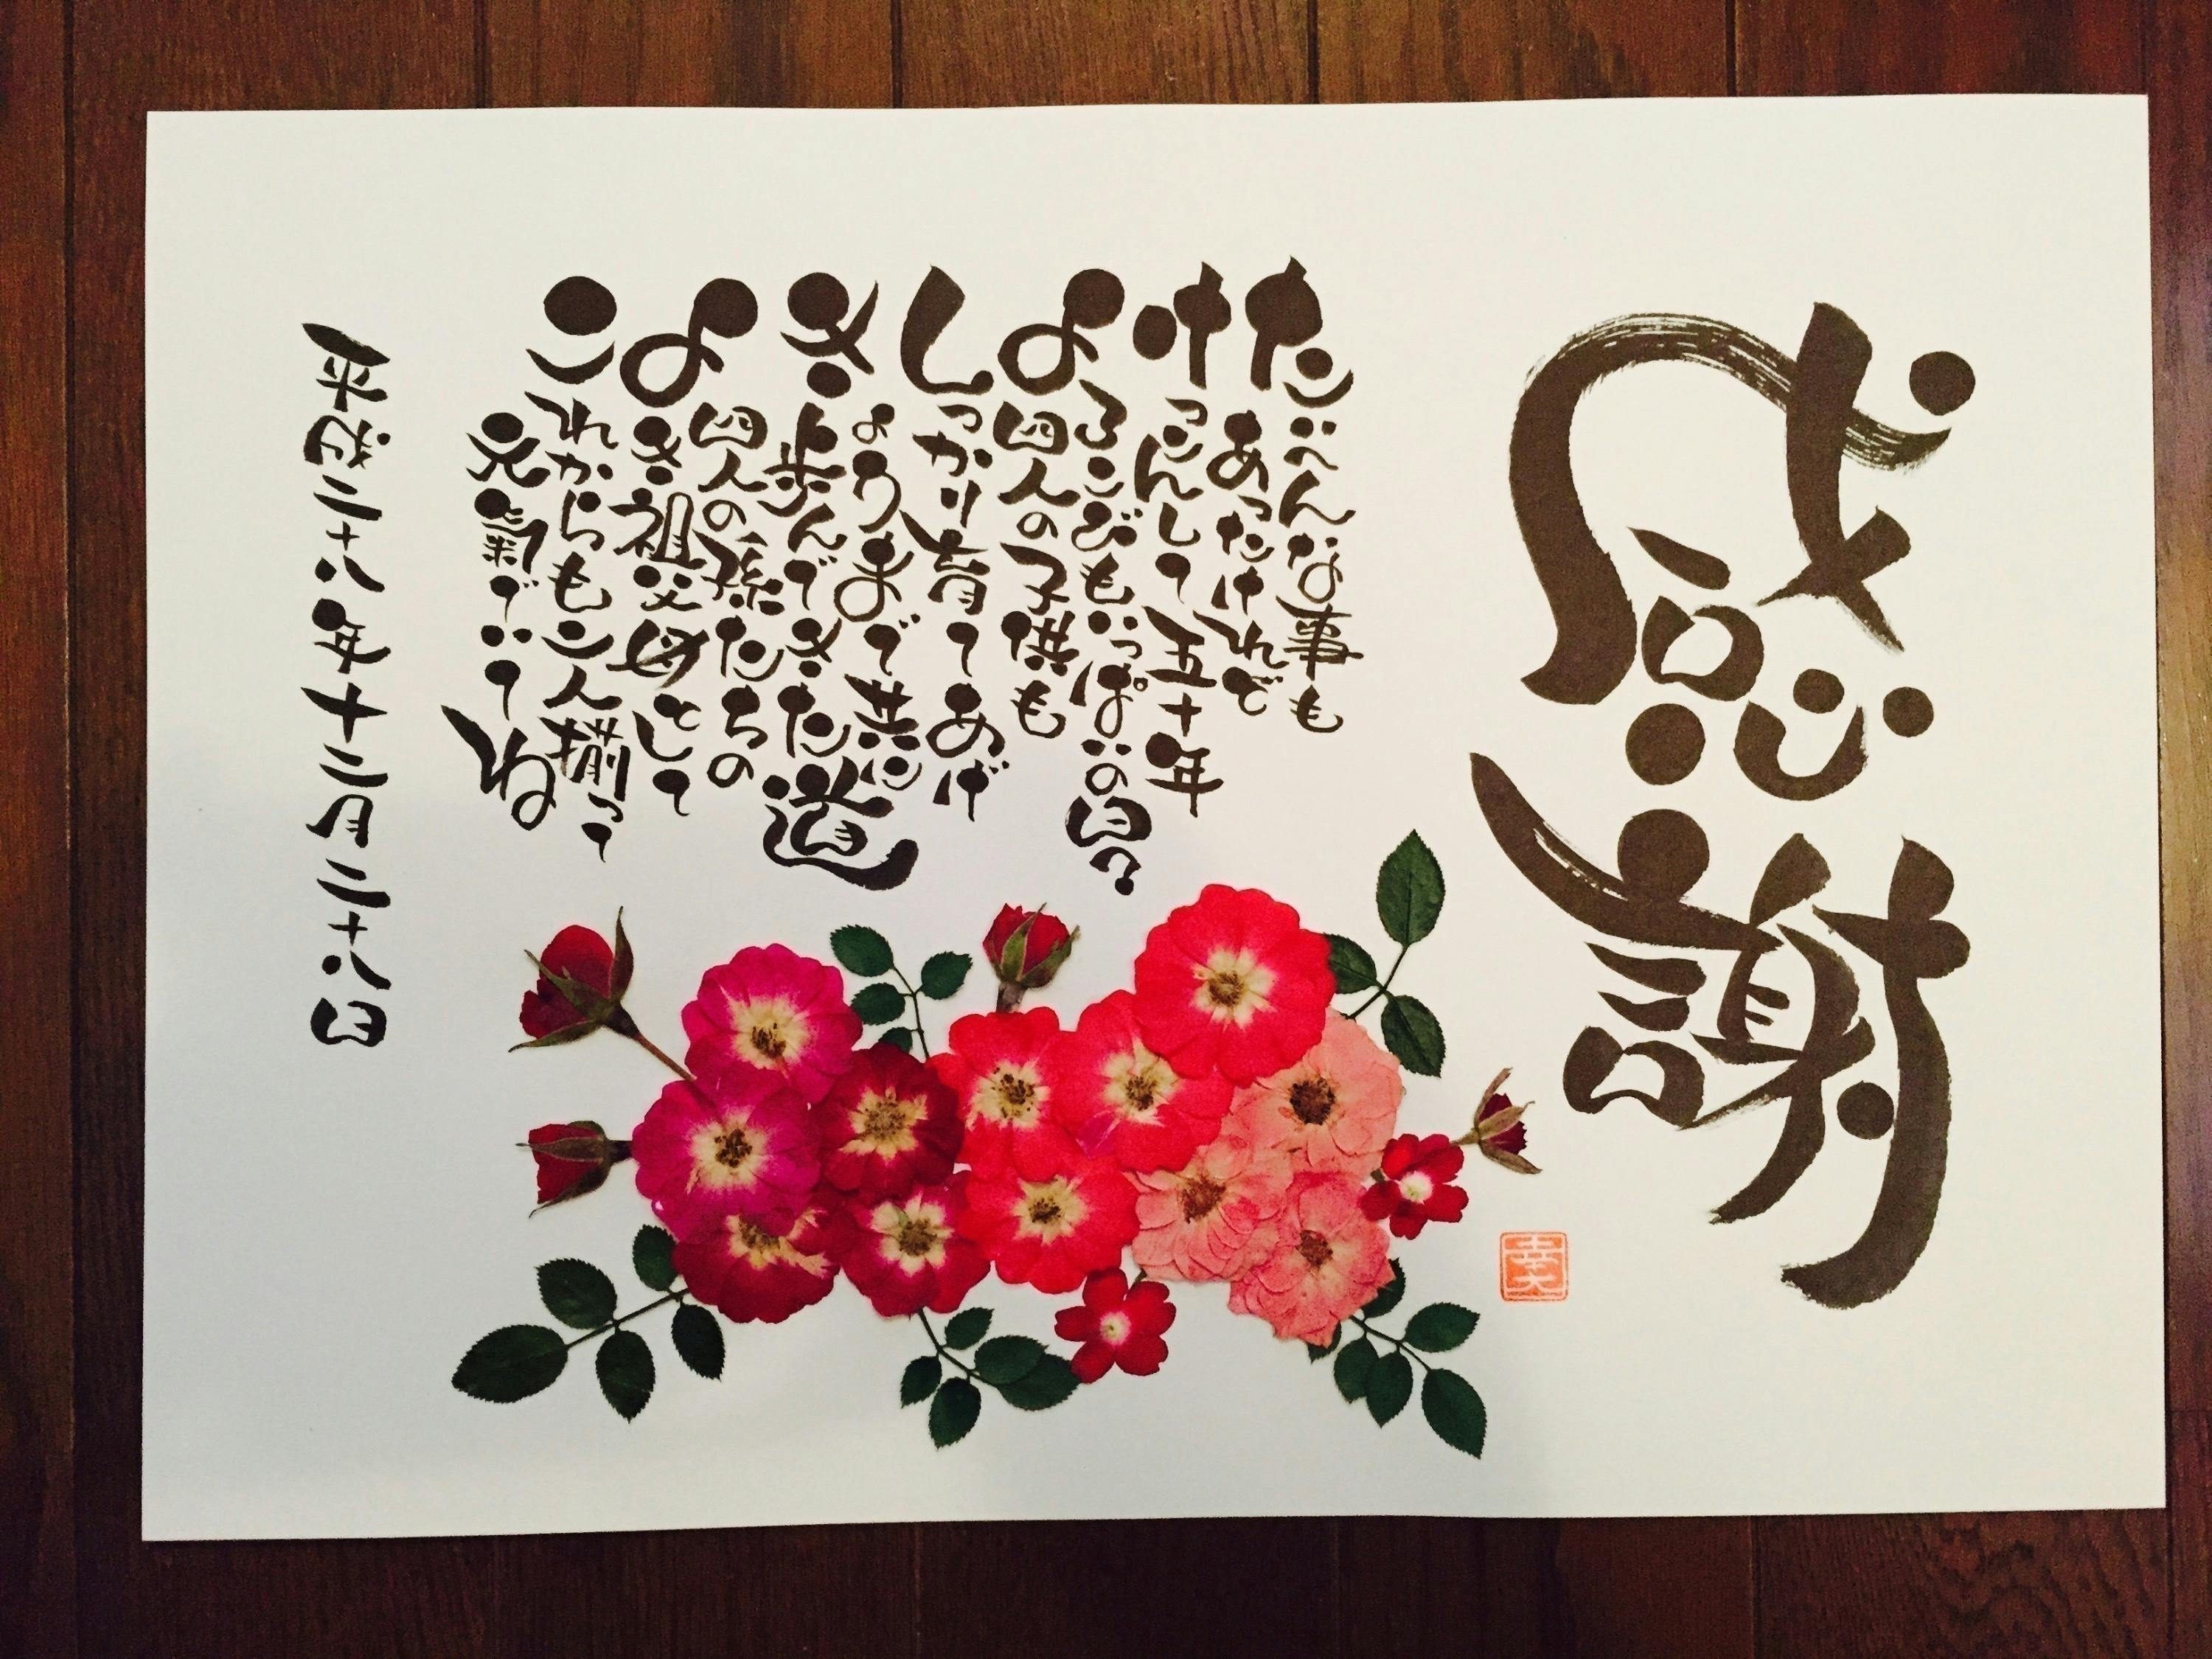 感謝
たいへんな事も
あったけれど
けっこんして五十年
よろこびもいっぱいの日々
四人の子供も
しっかり育てあげ
きょうまで共に
歩んできた道
四人の孫たちの
よき祖父母として
これからも二人揃って
元氣でいてね
平成二十八年十二月二十八日